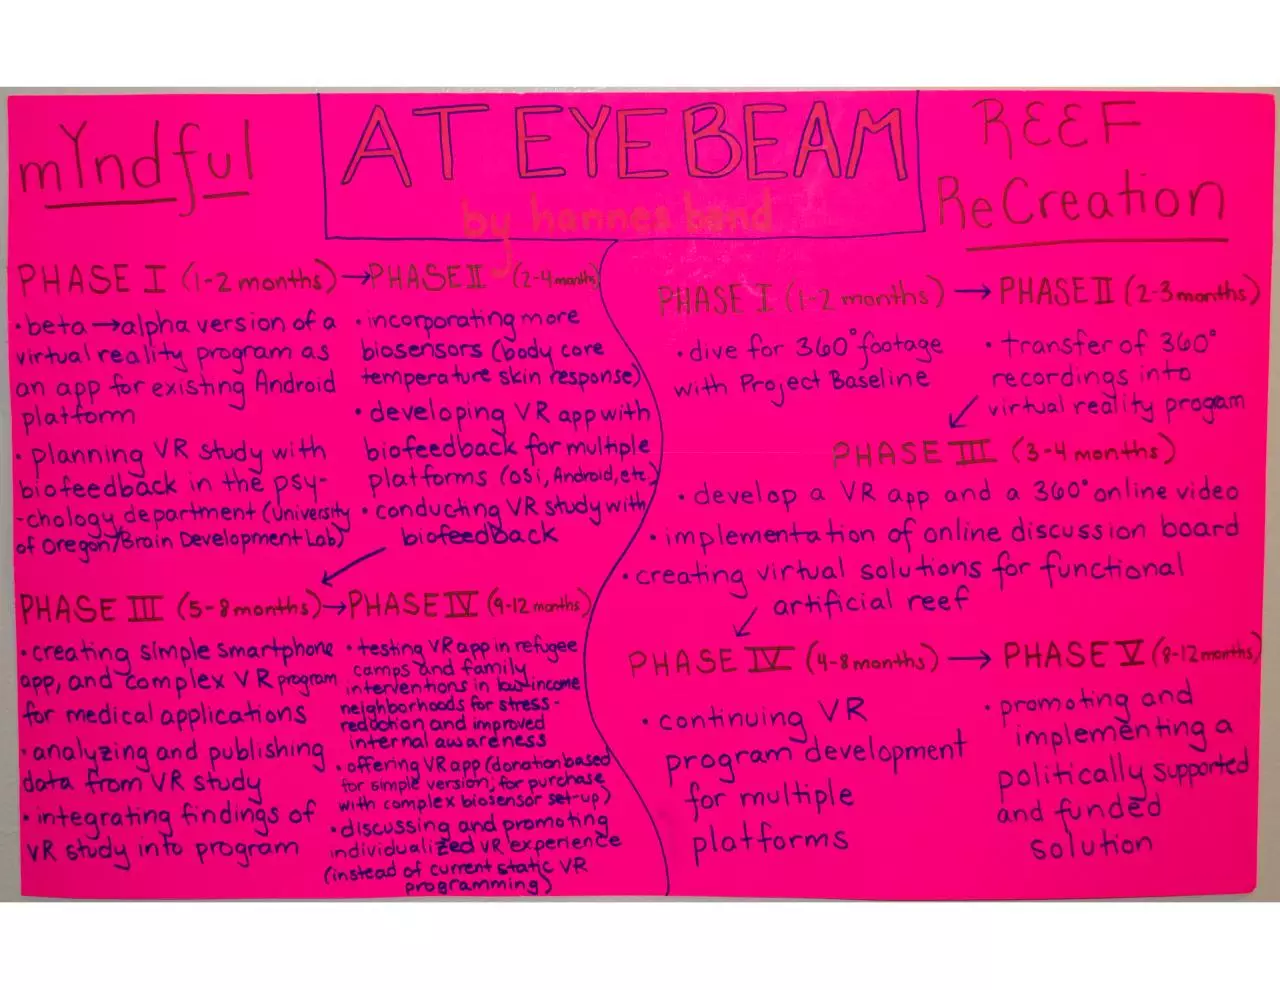 mYndful
AT EYEBEAM
by hannes bend
REEF
ReCreation
PHASE I (1-2 months) →
• beta → alpha version of a
virtual reality program as
an app for existing Android
platform
• planning VR study with
biofeedback in the psy-
-chology department (University
of Oregon/Brain Development Lab)
PHASE II (2-4 months)
• incorporating more
biosensors (body core
temperature skin response)
• developing VR app with
biofeedback for multiple
platforms (OSi, Android, etc)
• conducting VR study with
biofeedback
PHASE III (5-8 months) →
• creating simple smartphone
app, and complex VR program
for medical applications
• analyzing and publishing
data from VR study
• integrating findings of
VR study into program
PHASE IV (9-12 months)
• testing VR app in refugee
camps and family
interventions in low-income
neighborhoods for stress-
reduction and improved
internal awareness
• offering VR app (donation based
for simple version, for purchase
with complex biosensor set-up)
• discussing and promoting
individualized VR experience
(instead of current static VR
programming)
PHASE I (1-2 months) →
• dive for 360° footage
with Project Baseline
PHASE II (2-3 months)
• transfer of 360°
recordings into
virtual reality progam
PHASE III (3-4 months)
• develop a VR app and a 360° online video
• implementation of online discussion board
• creating virtual solutions for functional
artificial reef
PHASE IV (4-8 months) →
• continuing VR
program development
for multiple
platforms
PHASE V (8-12 months)
• promoting and
implementing a
politically supported
and funded
solution